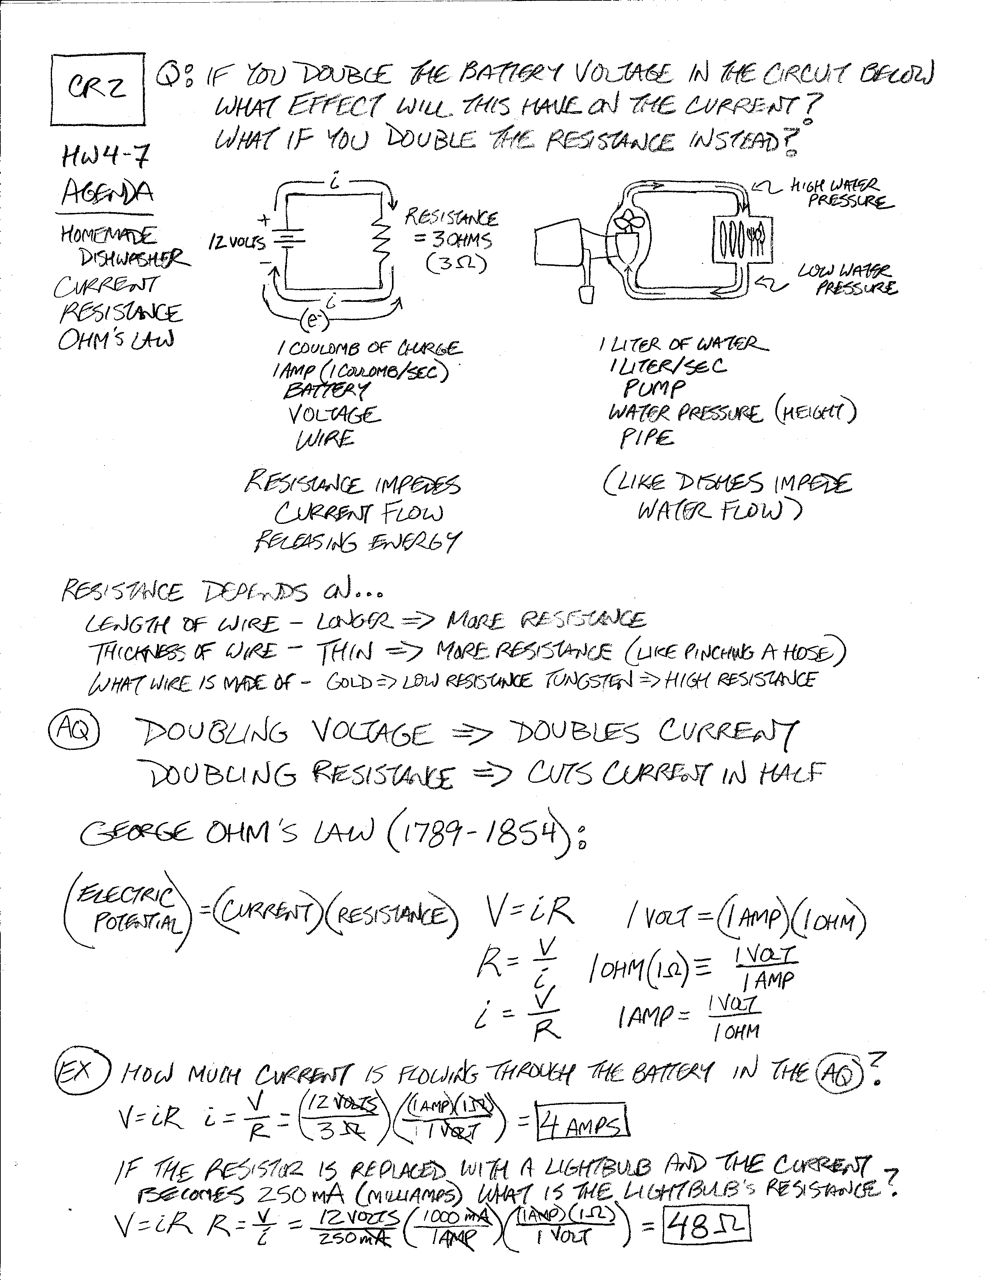 CR2
Q: IF YOU DOUBLE THE BATTERY VOLTAGE IN THE CIRCUIT BELOW
WHAT EFFECT WILL THIS HAVE ON THE CURRENT?
WHAT IF YOU DOUBLE THE RESISTANCE INSTEAD?
HW4-7
AGENDA
HOMEMADE
DISHWASHER
CURRENT
RESISTANCE
OHM'S LAW
i
+
12 VOLTS
–
RESISTANCE
= 3 OHMS
(3Ω)
i
(e⁻)
HIGH WATER
PRESSURE
LOW WATER
PRESSURE
1 COULOMB OF CHARGE
1 AMP (1 COULOMB/SEC)
BATTERY
VOLTAGE
WIRE
1 LITER OF WATER
1 LITER/SEC
PUMP
WATER PRESSURE (HEIGHT)
PIPE
RESISTANCE IMPEDES
CURRENT FLOW
RELEASING ENERGY
(LIKE DISHES IMPEDE
WATER FLOW)
RESISTANCE DEPENDS ON...
LENGTH OF WIRE – LONGER ⇒ MORE RESISTANCE
THICKNESS OF WIRE – THIN ⇒ MORE RESISTANCE (LIKE PINCHING A HOSE)
WHAT WIRE IS MADE OF – GOLD ⇒ LOW RESISTANCE TUNGSTEN ⇒ HIGH RESISTANCE
AQ DOUBLING VOLTAGE ⇒ DOUBLES CURRENT
DOUBLING RESISTANCE ⇒ CUTS CURRENT IN HALF
GEORGE OHM'S LAW (1789-1854):
(ELECTRIC POTENTIAL) = (CURRENT)(RESISTANCE) V=iR 1 VOLT = (1 AMP)(1 OHM)
R = V/i 1 OHM (1Ω) ≡ 1 VOLT/1 AMP
i = V/R 1 AMP = 1 VOLT/1 OHM
EX HOW MUCH CURRENT IS FLOWING THROUGH THE BATTERY IN THE AQ?
V=iR i = V/R = (12 VOLTS/3Ω)((1 AMP)(1Ω)/1 VOLT) = 4 AMPS
IF THE RESISTOR IS REPLACED WITH A LIGHTBULB AND THE CURRENT
BECOMES 250 mA (MILLIAMPS) WHAT IS THE LIGHTBULB'S RESISTANCE?
V=iR R = V/i = 12 VOLTS/250 mA (1000 mA/1 AMP)((1 AMP)(1Ω)/1 VOLT) = 48Ω